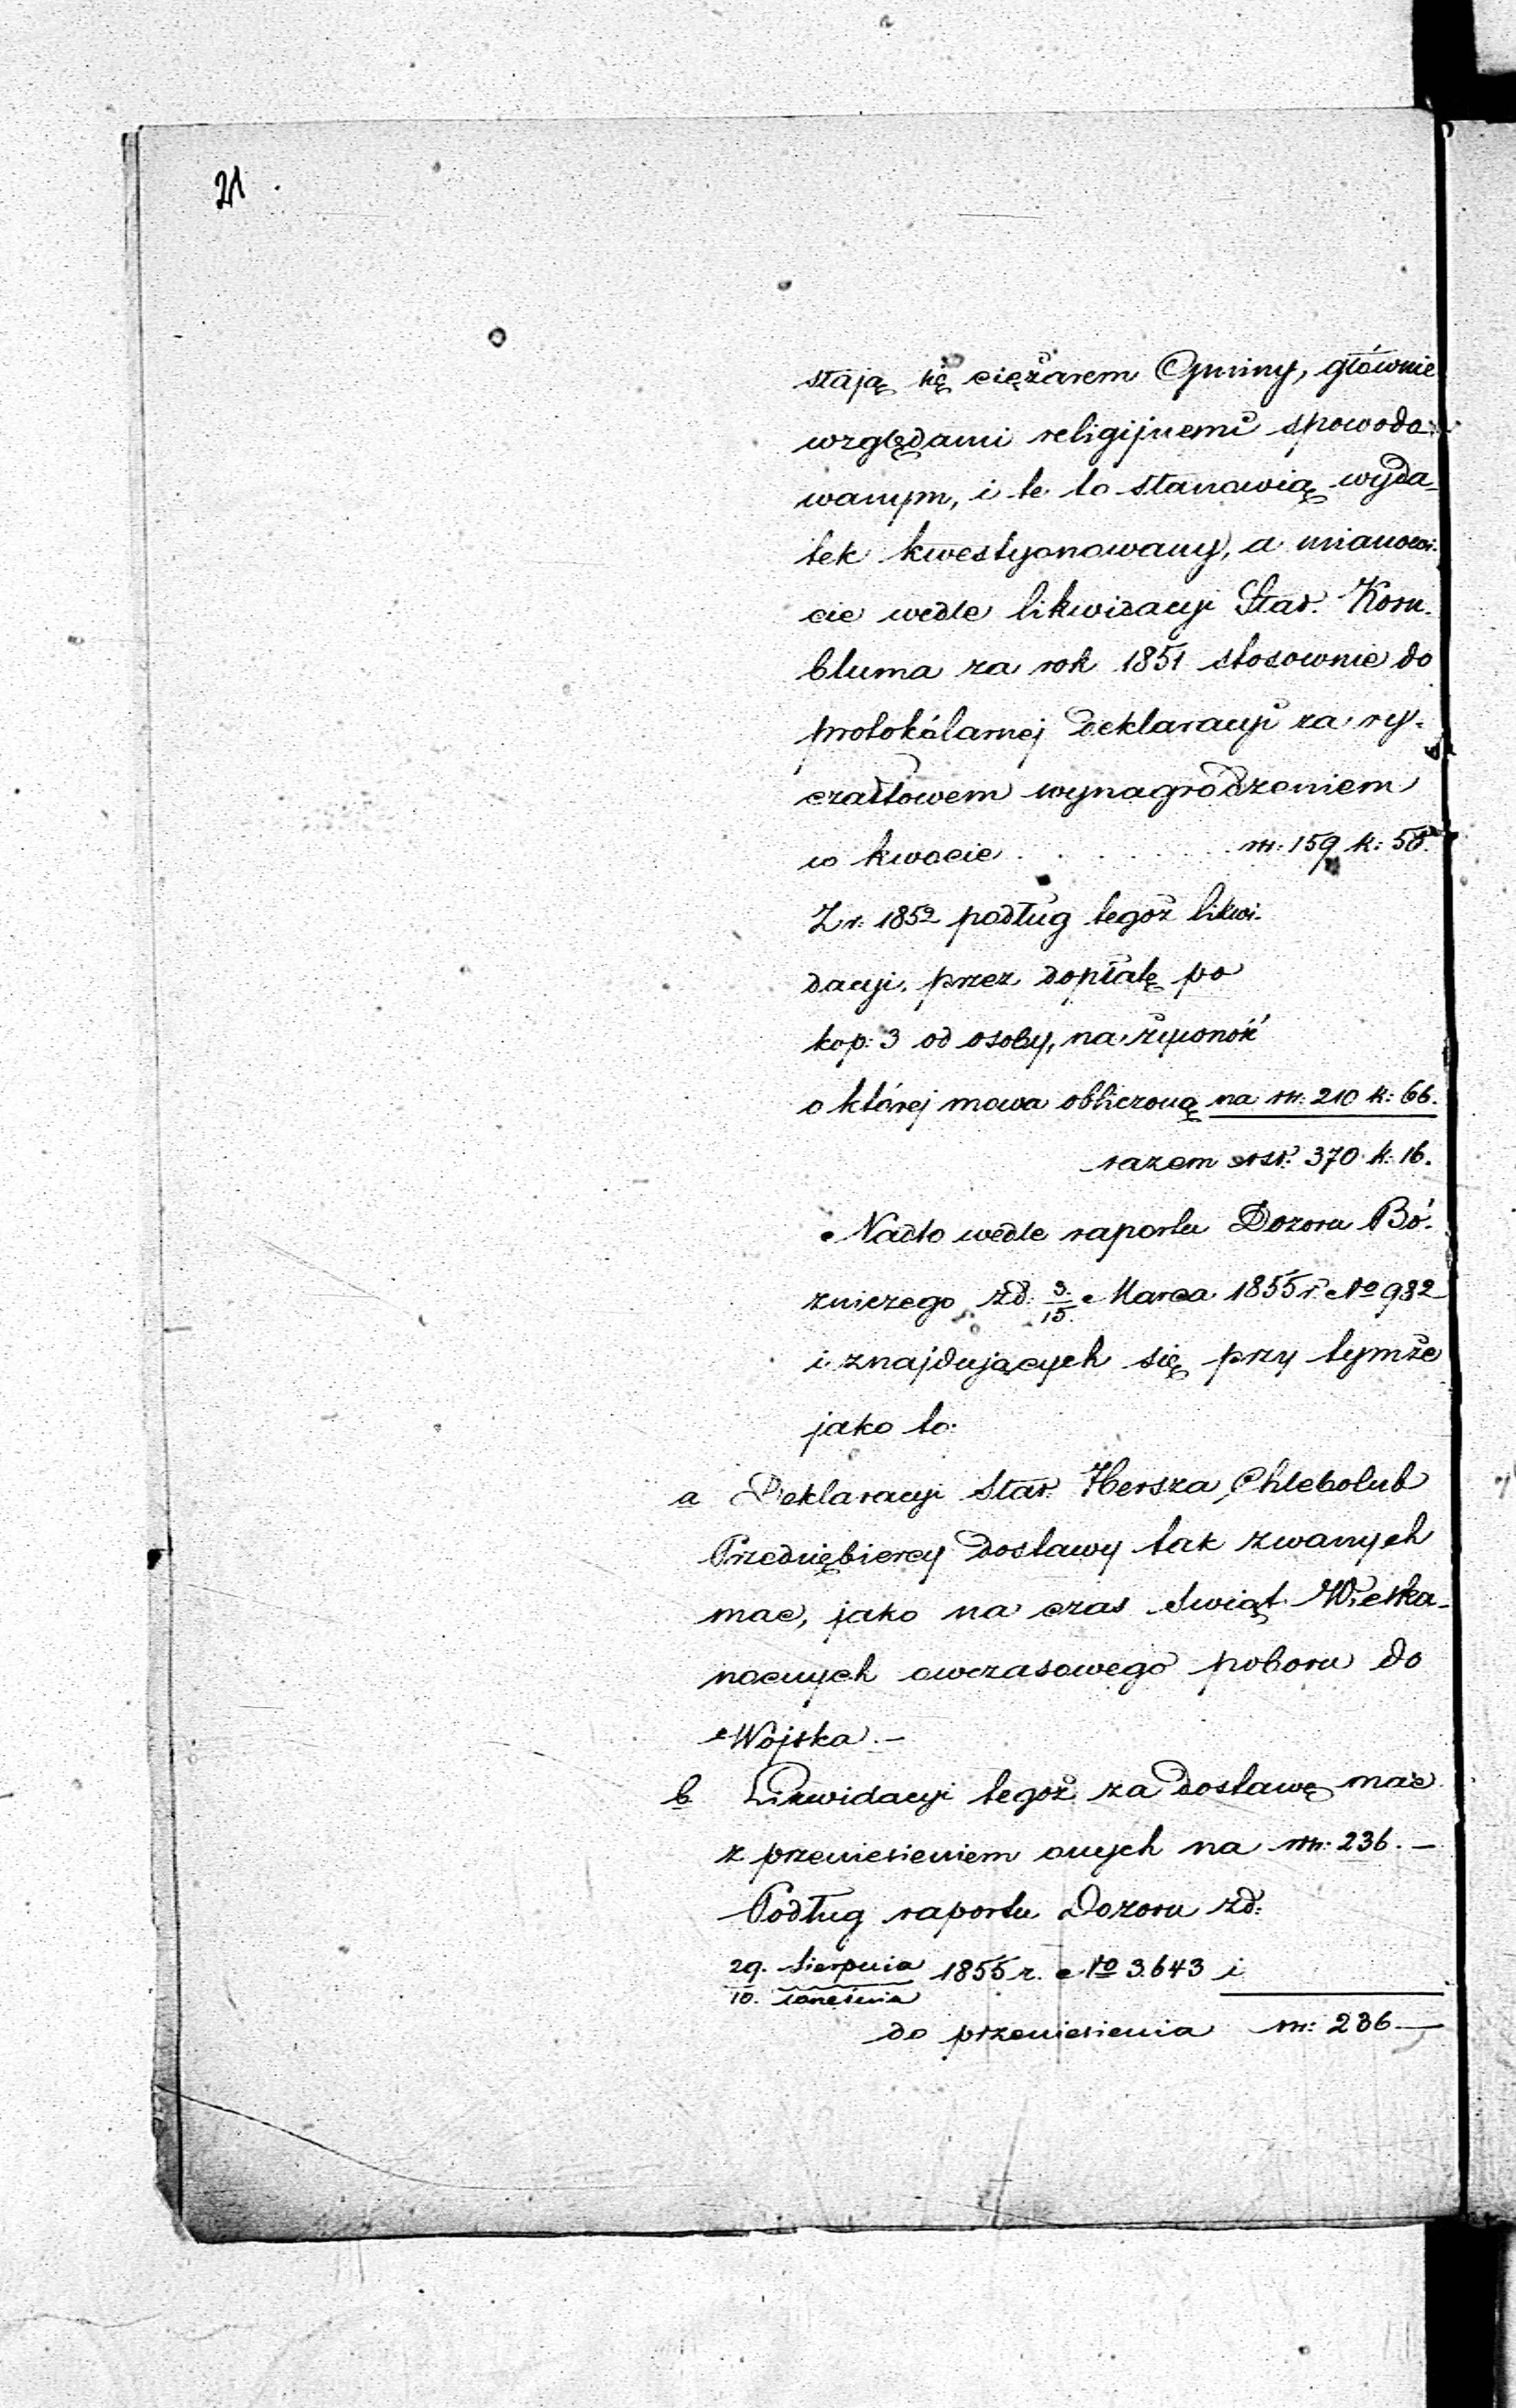 21
stają się ciężarem Gminy, głównie
względami religijnemi spowodo-
wanym, i te to stanowią wyda-
tek kwestyonowany, a mianowi-
cie wedle likwidacyi Star. Korn-
bluma za rok 1851 stosownie do
protokólarnej deklaracyi za ry-
czałtowem wynagrodzeniem
w kwocie . . . . . . . rs: 159 k: 50.
Z r. 1852 podług tegoż likwi-
dacyi, przez dopłatę po
kop: 3 od osoby, na żywność
o której mowa obliczoną na rs: 210 k: 66.
razem rsr. 370 k: 16.
Nadto wedle raportu Dozoru Bó-
żniczego zd. 3/15 Marca 1855 r. No 982
i znajdujących się przy tymże
jako to:
a Deklaracyi Star. Hersza Chlebolub
Przedsiębiercy dostawy tak zwanych
mac, jako na czas Świąt Wielka-
nocnych owczasowego poboru do
Wojska. –
b Likwidacyi tegoż za dostawę mac
z przeniesieniem onych na rs: 236. –
Podług raportu Dozoru zd:
29. Sierpnia 1855 r. No 3.643 i
10. września
do przeniesienia rs: 236 –